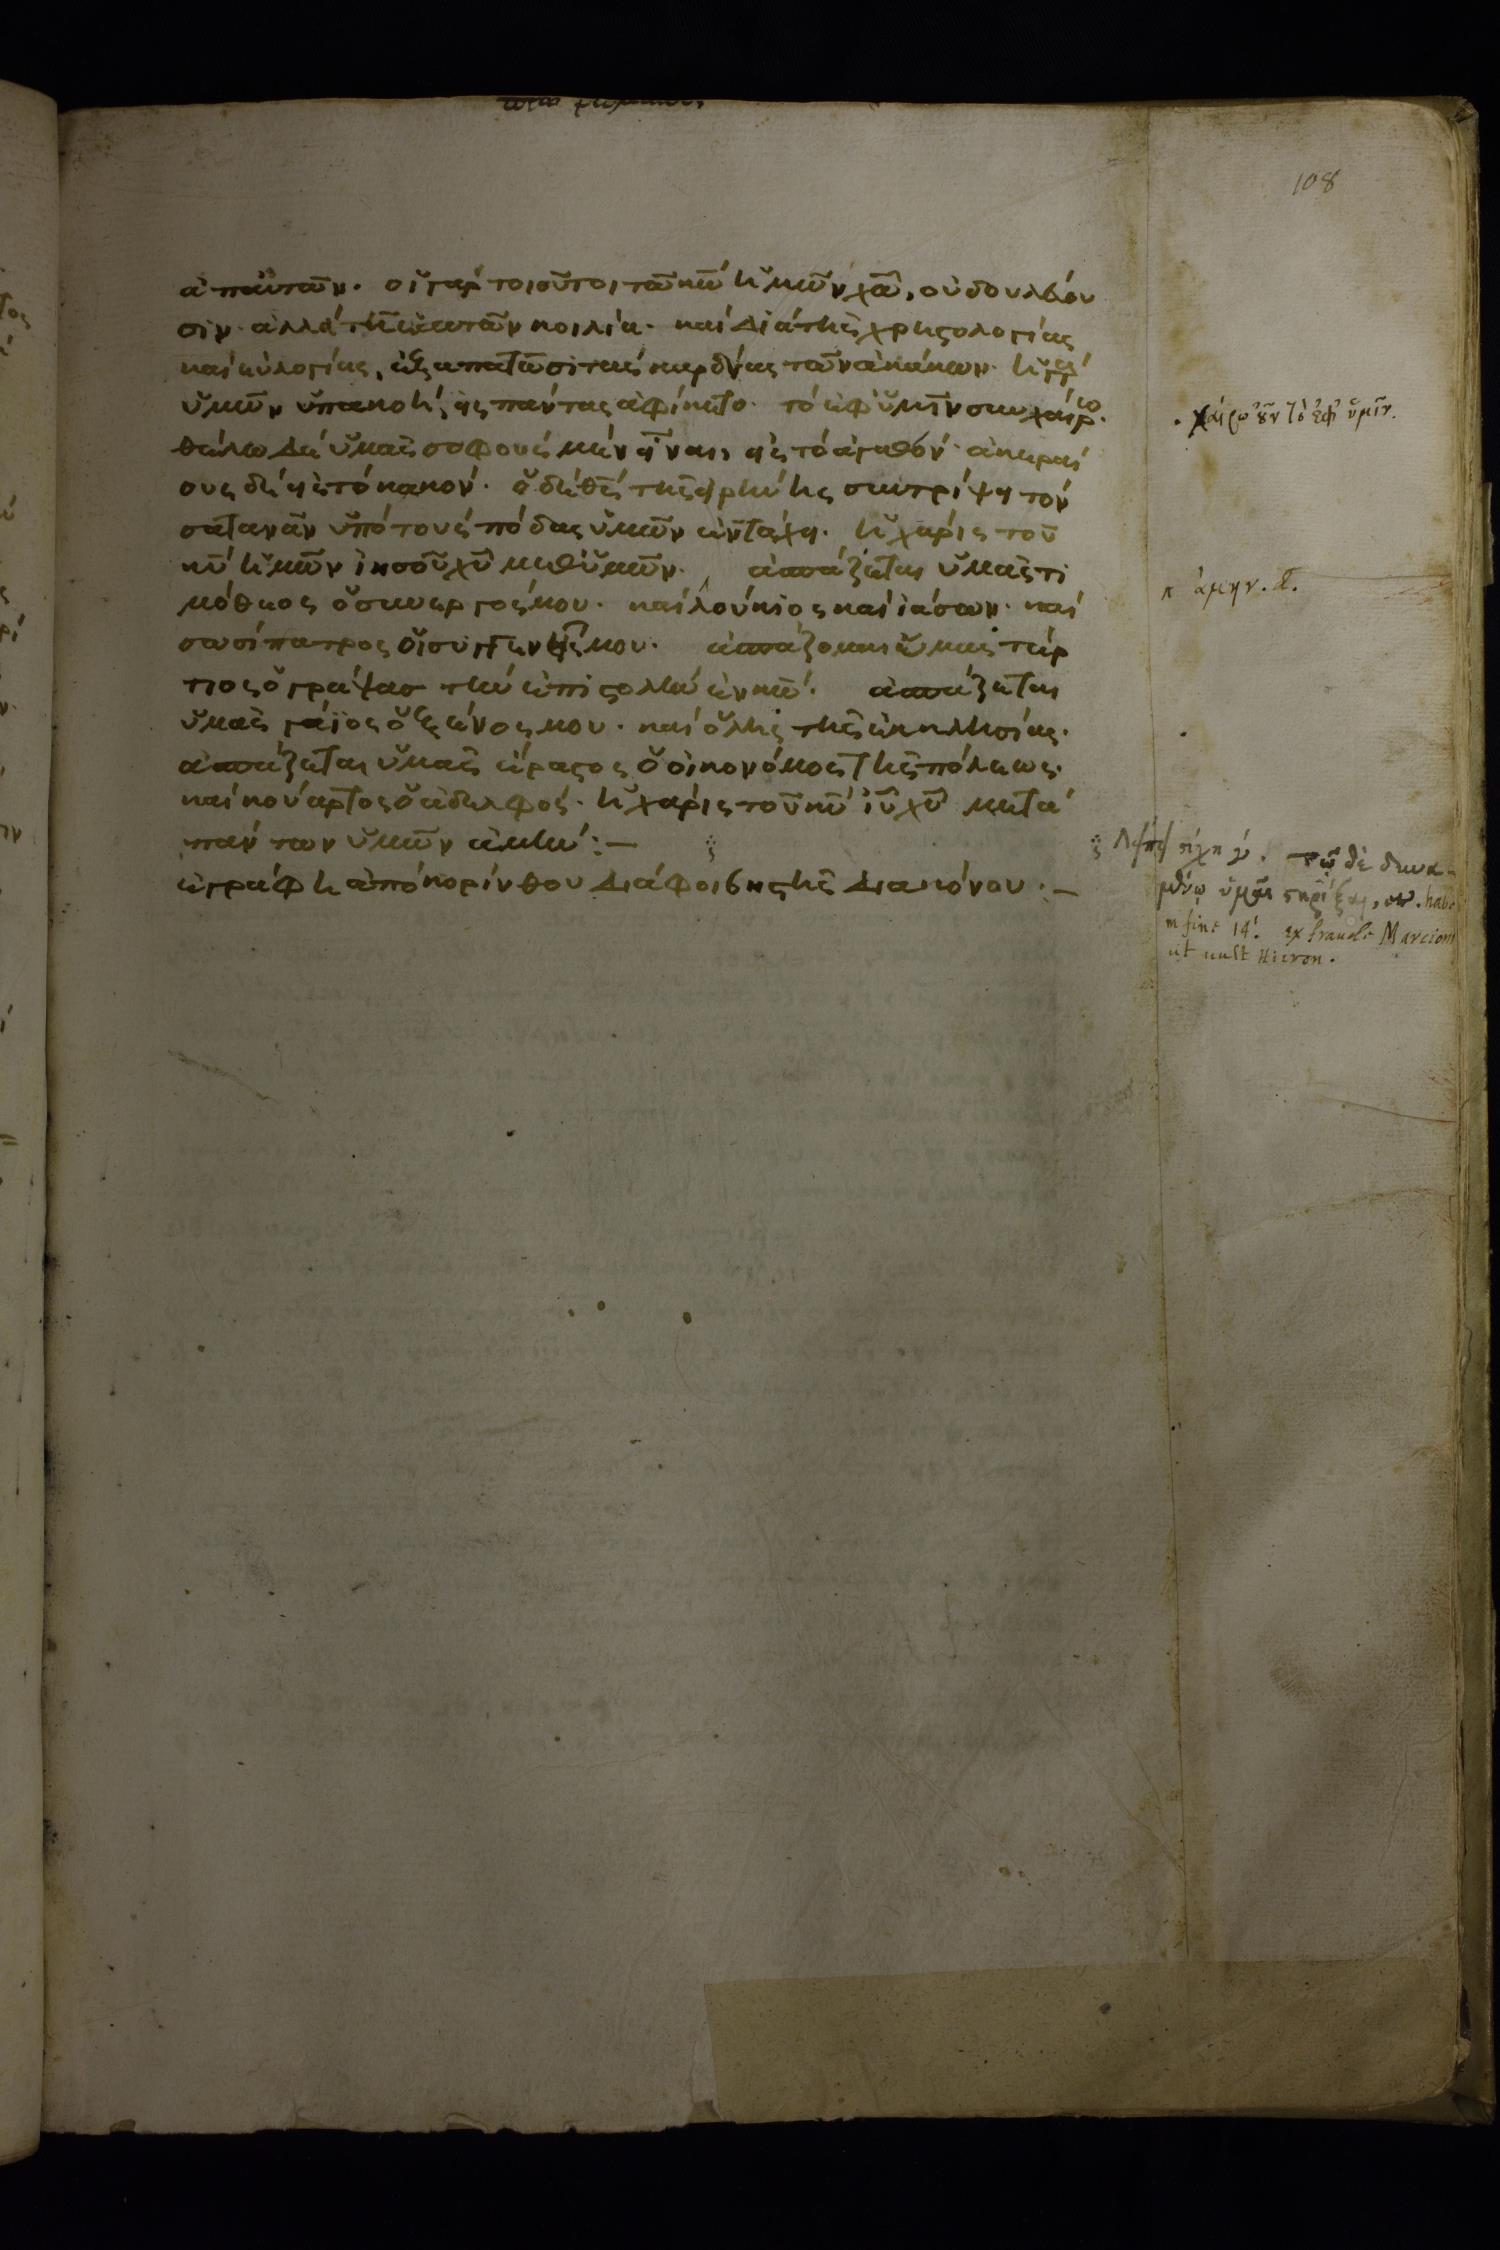 108
ἀπ' αὐτῶν. οἱ γὰρ τοιοῦτοι τῶ κῶ ἡμῶν χῶ, οὐ δουλεύου
σιν. ἀλλὰ τῆ ἑαυτῶν κοιλία. καὶ διὰ τῆς χρηστολογίας
καὶ εὐλογίας, ἐξαπατῶσι τὰς καρδίας τῶν ἀκάκων. ἡ γὰρ
ὑμῶν ὑπακοὴ, εἰς πάντας ἀφίκετο. τὸ ἐφ' ὑμῖν συγχαίρω.
θέλω δὲ ὑμᾶς σοφοὺς μὲν εἶναι, εἰς τὸ ἀγαθόν. ἀκεραί
ους δὲ εἰς τὸ κακόν. ὁ δὲ θς τῆς εἰρήνης συντρίψει τὸν
σατανᾶν ὑπὸ τοὺς πόδας ὑμῶν ἐν τάχει. ἡ χάρις τοῦ
κυ ἡμῶν ἰησοῦ χυ μεθ' ὑμῶν. ἀσπάζεται ὑμᾶς τι
μόθεος ὁ συνεργός μου. καὶ λούκιος καὶ ἰάσων. καὶ
σωσίπατρος οἱ συγγενεῖς μου. ἀσπάζομαι ὑμᾶς τέρ
τιος ὁ γράψας τὴν ἐπιστολὴν ἐν κω. ἀσπάζεται
ὑμᾶς γάϊος ὁ ξένος μου. καὶ ὅλης τῆς ἐκκλησίας.
ἀσπάζεται ὑμᾶς ἔραστος ὁ οἰκονόμος τῆς πόλεως.
καὶ κούαρτος ὁ ἀδελφός. ἡ χάρις τοῦ κυ ἰυ χυ μετὰ
πάντων ὑμῶν ἀμήν :—
ἐγράφη ἀπὸ κορίνθου διὰ φοίβης τῆς διακόνου :—
χαίρω οὖν τὸ ἐφ' ὑμῖν.
ἀμην. d.
τῷ δὲ δυνα-
μένῳ ὑμᾶς στηρίξαι, habe
in fine 14. ex fraude Marcion
ut uult Hieron.